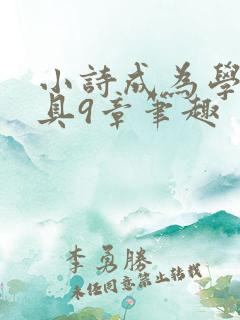 小詩成為學
具9章筆趣
李勇勝
未经同意禁止转载